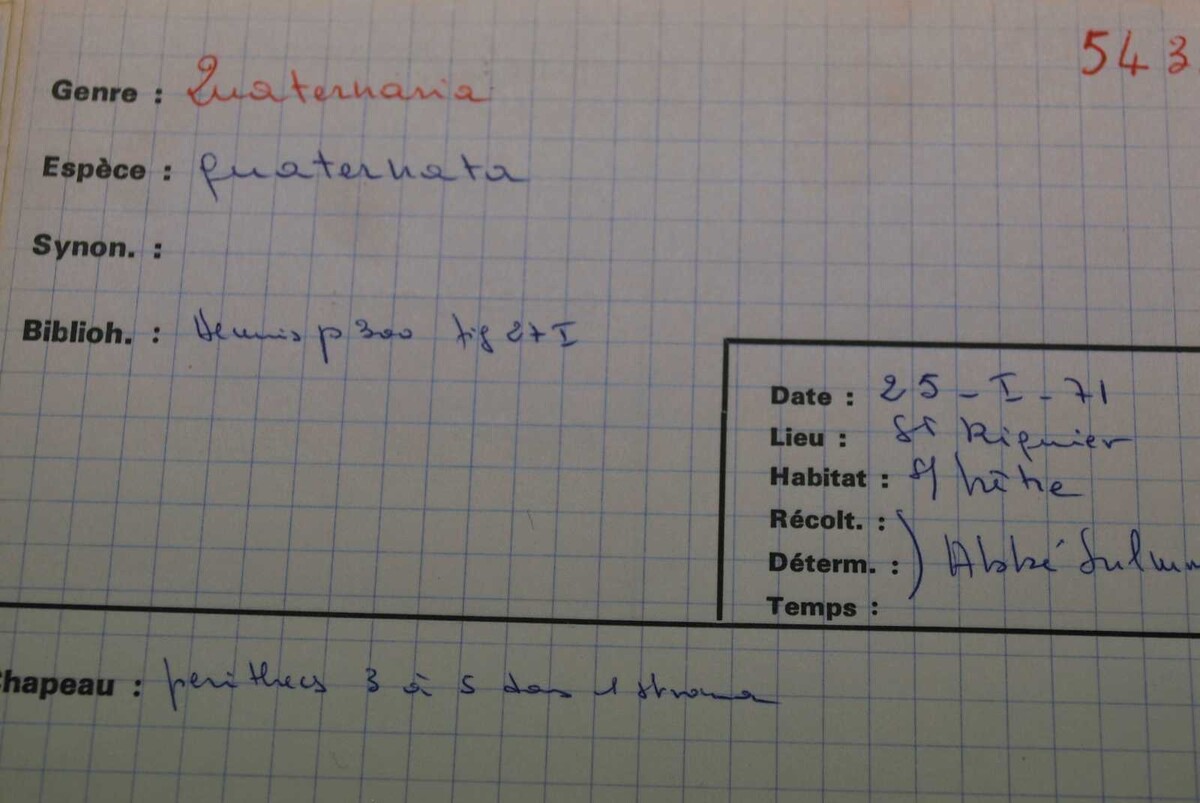 543
Genre : Quaternaria
Espèce : quaternata
Synon. :
Biblioh. : Dennis p 300 fig 27 I
Date : 25 - I - 71
Lieu : St Riquier
Habitat : s/ hêtre
Récolt. :
Déterm. : Abbé
Temps :
Chapeau : perithecs 3 à 5 dans 1 stroma